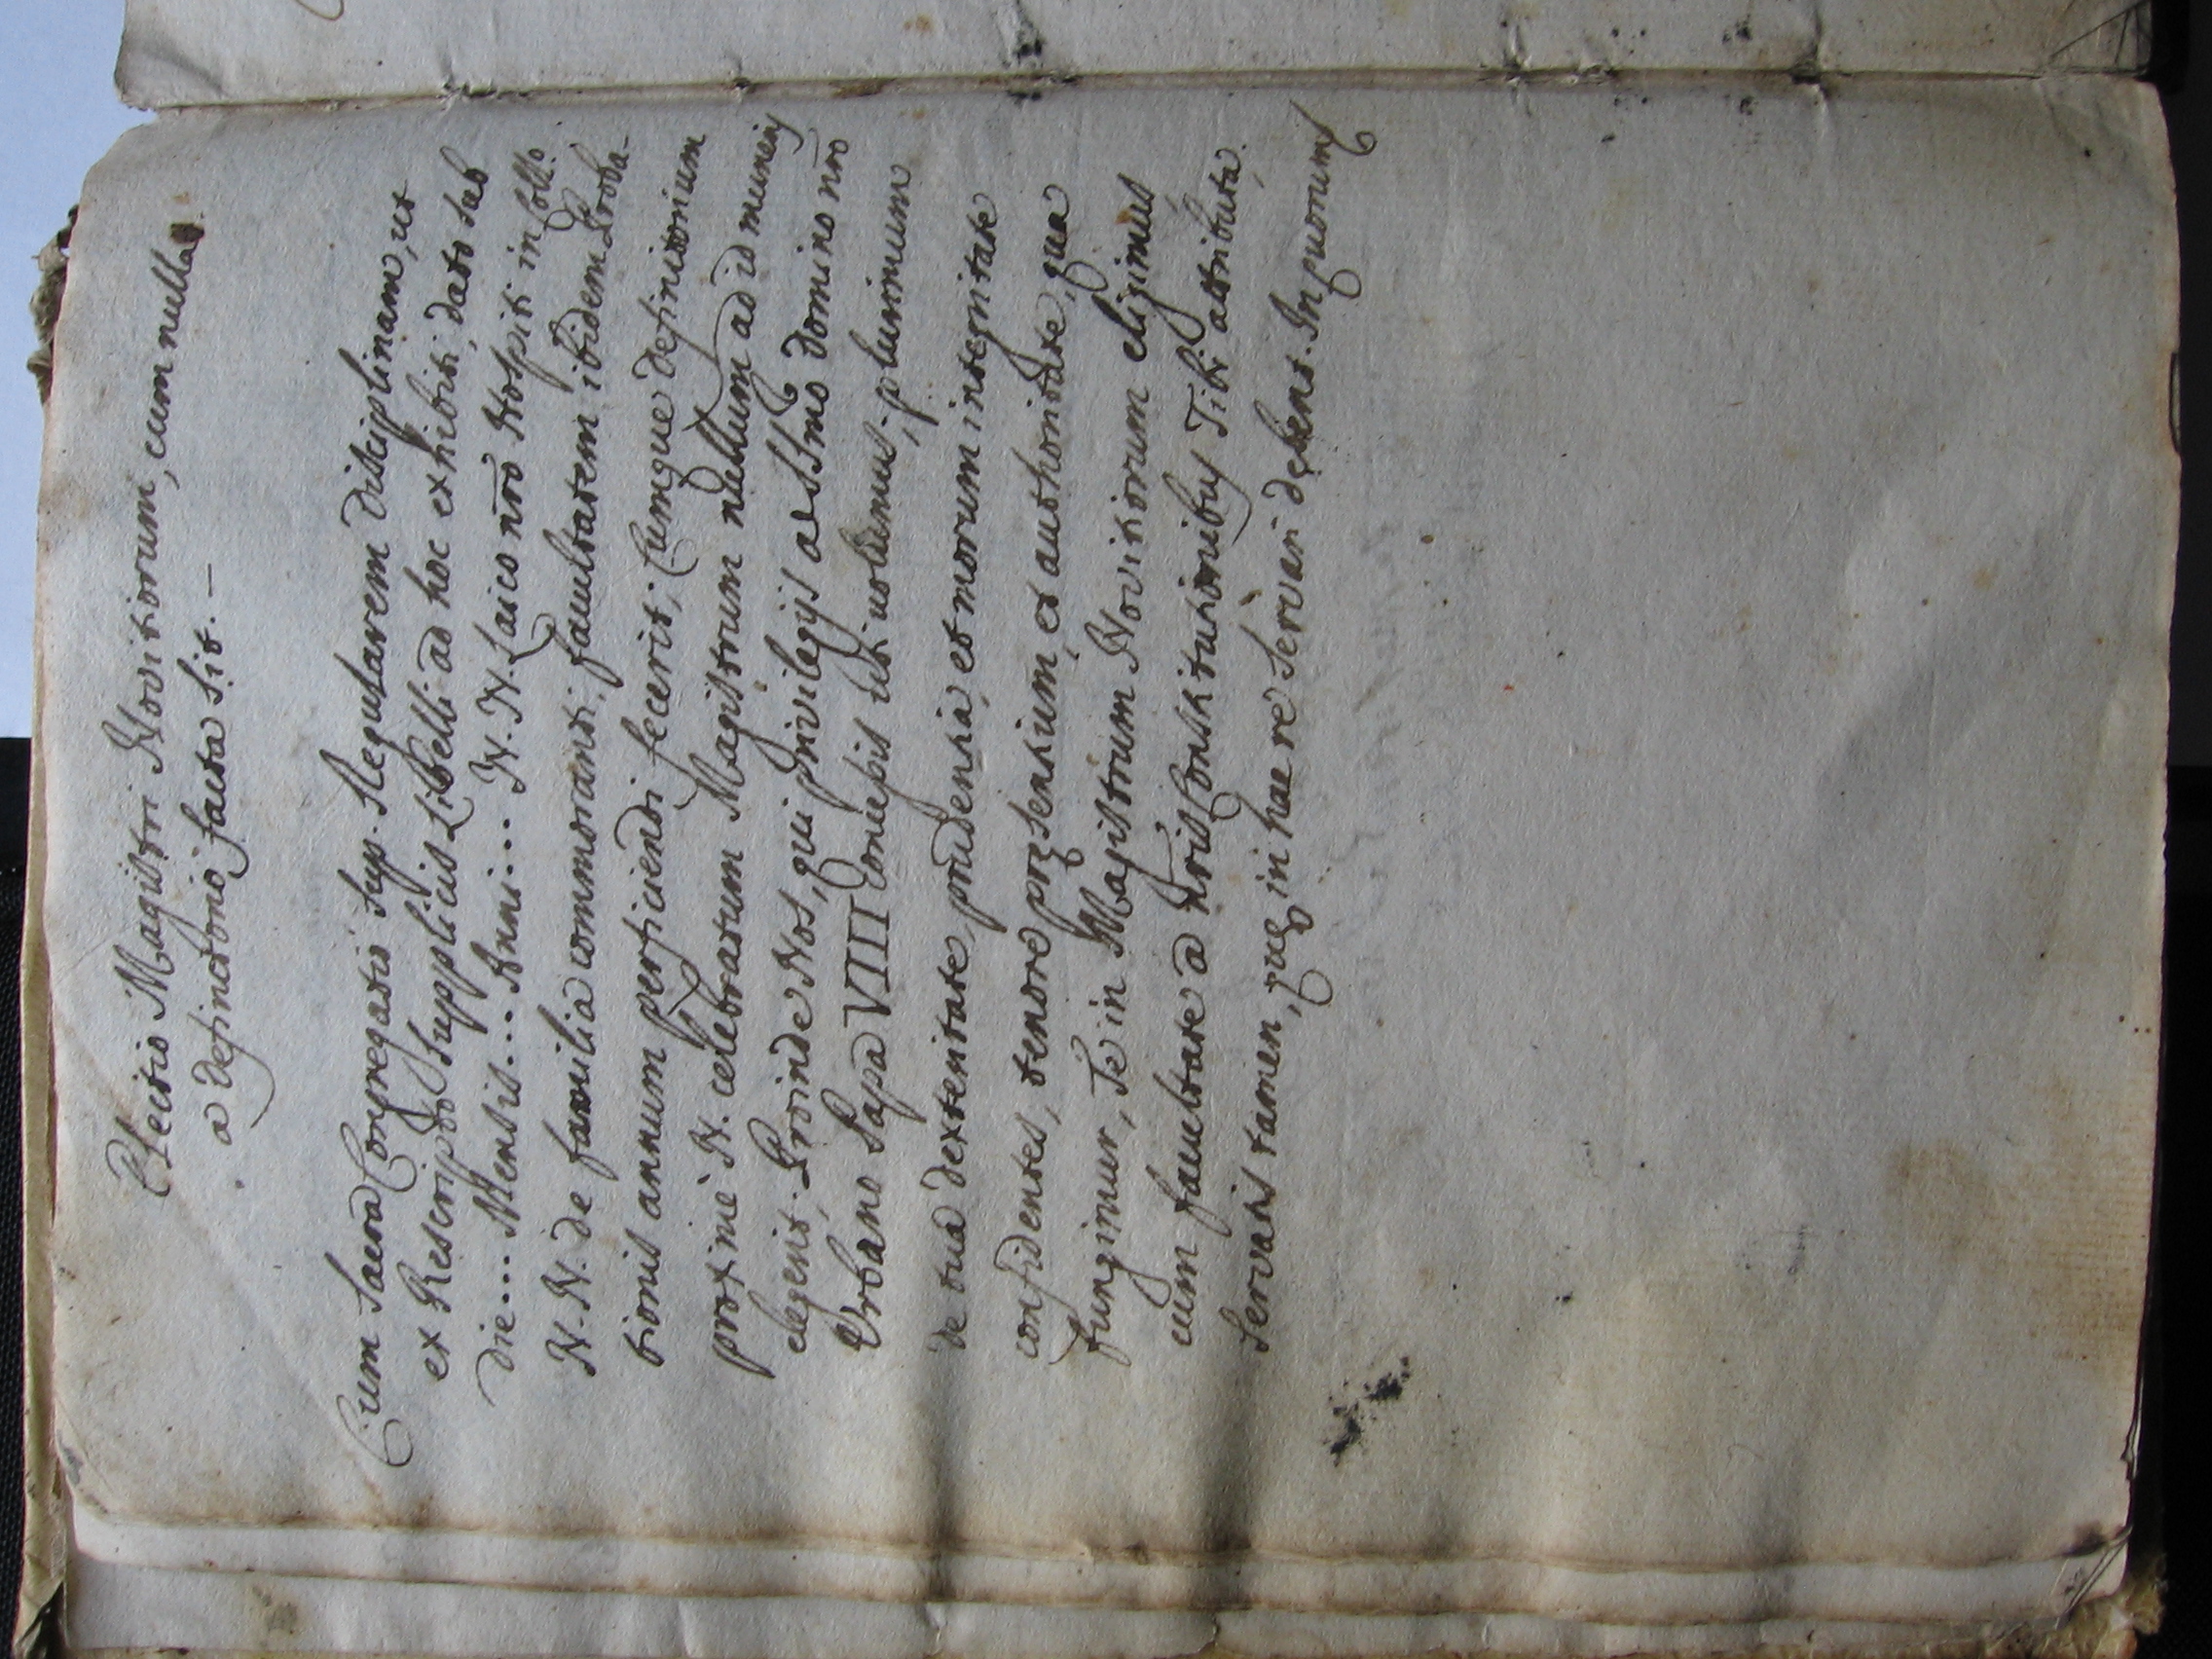 Electio Magistri Novitiorum, cum nulla
a Definitorio facta sit. —
Cum Sacra Congregatio Sup. Regularem Disciplinam, ut
ex Rescripto Supplicis Libelli ad hoc exhibiti, dato sub
die... Mensis... Anni... N. N. Laico nrō Hospiti in Coll.º
N. N. de familia commoranti, facultatem ibidem Proba-
tionis annum perficiendi fecerit; Cumque Definitorium
proximè N. celebratum Magistrum nullum ad id muneris
elegerit. Proinde Nos, qui Privilegijs a SSmō Domino nrō
Urbano Papa VIII concessis uti volumus, plurimum
de tua dexteritate, prudentia, et morum integritate
confidentes, tenore præsentium, et authoritate, qua
fungimur, Te in Magistrum Novitiorum eligimus
cum facultate a Nrīs Constitutionibus Tibi attributa.
Servatis tamen, quę in hac re Servari debent. In quorum